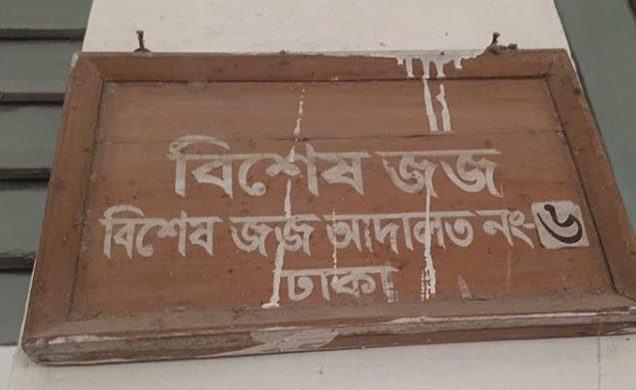 বিশেষ জজ
বিশেষ জজ আদালত নং-৬
ঢাকা